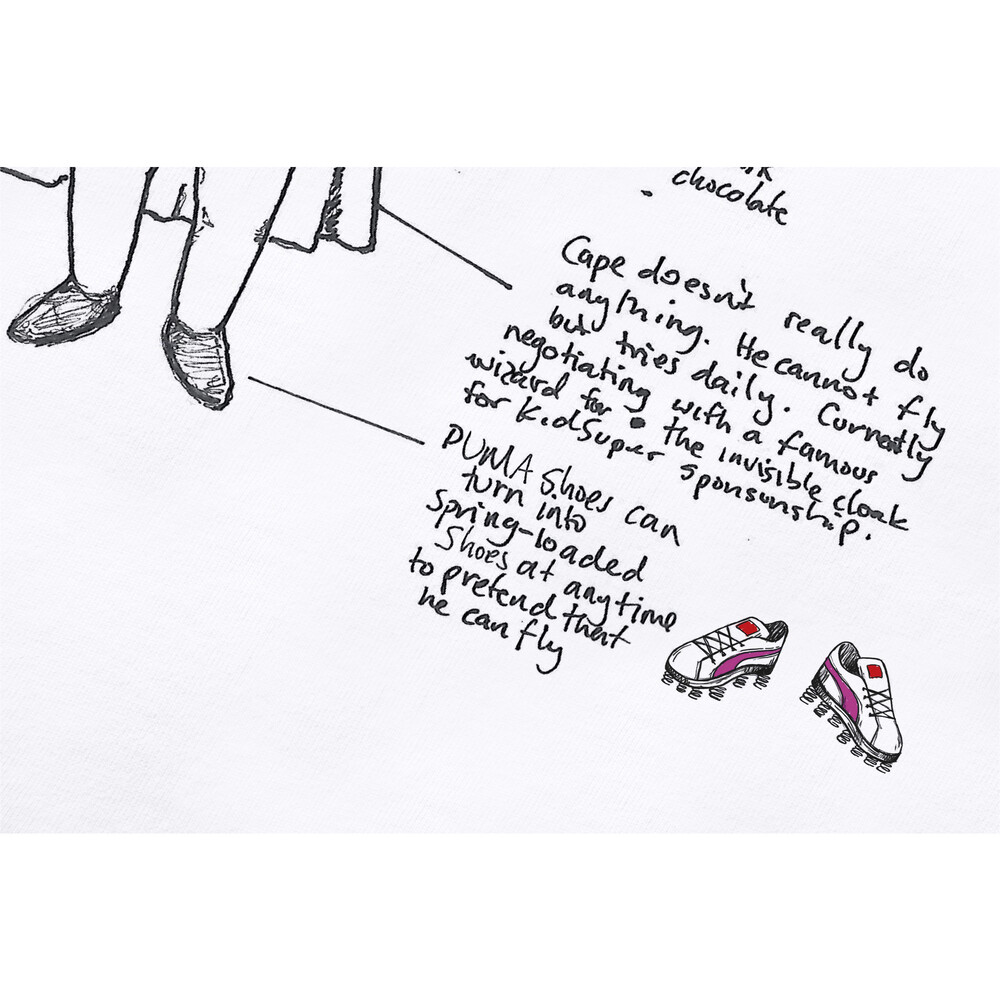 chocolate
Cape doesn't really do
anything. He cannot fly
but tries daily. Currently
negotiating with a famous
wizard for the invisible cloak
for KidSuper sponsorship.
PUMA Shoes can
turn into
spring-loaded
Shoes at anytime
to pretend that
he can fly